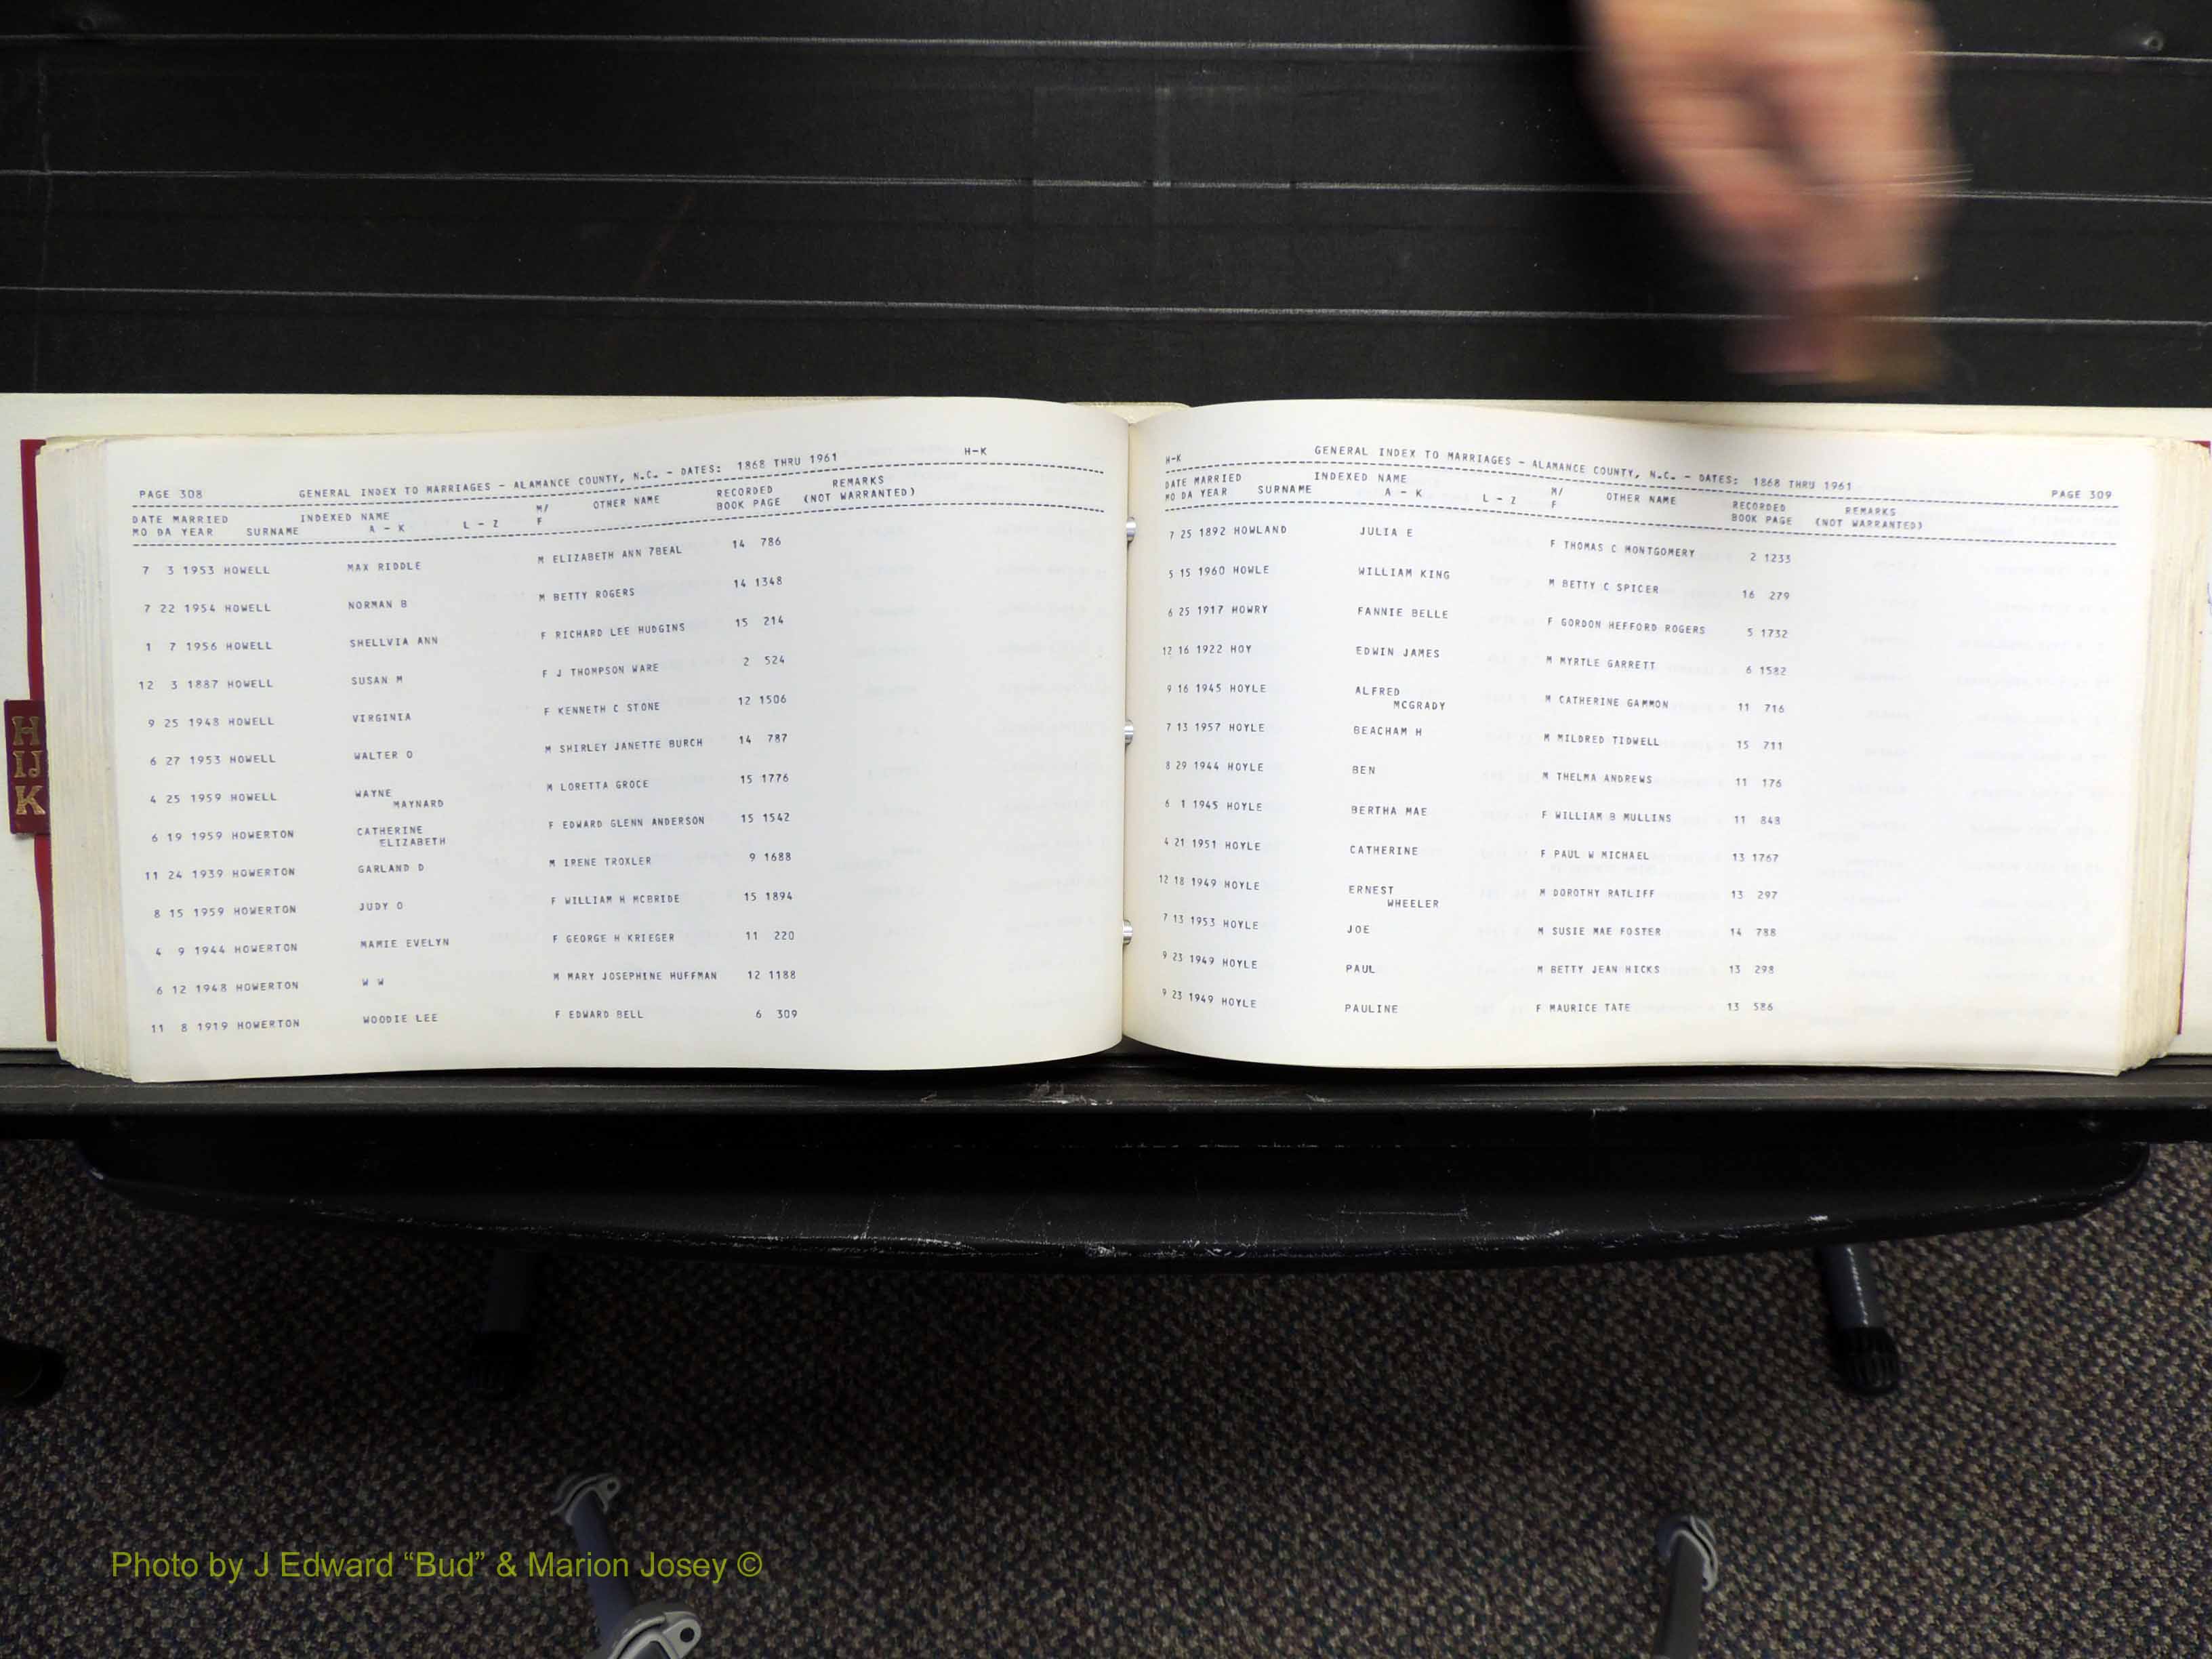 H
IJ
K
PAGE 308 GENERAL INDEX TO MARRIAGES - ALAMANCE COUNTY, N.C. - DATES: 1868 THRU 1961 H-K
DATE MARRIED INDEXED NAME M/ OTHER NAME RECORDED REMARKS
MO DA YEAR SURNAME A - K L - Z F BOOK PAGE (NOT WARRANTED)
7 3 1953 HOWELL MAX RIDDLE M ELIZABETH ANN 7BEAL 14 786
7 22 1954 HOWELL NORMAN B M BETTY ROGERS 14 1348
1 7 1956 HOWELL SHELLVIA ANN F RICHARD LEE HUDGINS 15 214
12 3 1887 HOWELL SUSAN M F J THOMPSON WARE 2 524
9 25 1948 HOWELL VIRGINIA F KENNETH C STONE 12 1506
6 27 1953 HOWELL WALTER O M SHIRLEY JANETTE BURCH 14 787
4 25 1959 HOWELL WAYNE M LORETTA GROCE 15 1776
MAYNARD
6 19 1959 HOWERTON CATHERINE F EDWARD GLENN ANDERSON 15 1542
ELIZABETH
11 24 1939 HOWERTON GARLAND D M IRENE TROXLER 9 1688
8 15 1959 HOWERTON JUDY O F WILLIAM H MCBRIDE 15 1894
4 9 1944 HOWERTON MAMIE EVELYN F GEORGE H KRIEGER 11 220
6 12 1948 HOWERTON W W M MARY JOSEPHINE HUFFMAN 12 1188
11 8 1919 HOWERTON WOODIE LEE F EDWARD BELL 6 309
H-K GENERAL INDEX TO MARRIAGES - ALAMANCE COUNTY, N.C. - DATES: 1868 THRU 1961 PAGE 309
DATE MARRIED INDEXED NAME M/ OTHER NAME RECORDED REMARKS
MO DA YEAR SURNAME A - K L - Z F BOOK PAGE (NOT WARRANTED)
7 25 1892 HOWLAND JULIA E F THOMAS C MONTGOMERY 2 1233
5 15 1960 HOWLE WILLIAM KING M BETTY C SPICER 16 279
6 25 1917 HOWRY FANNIE BELLE F GORDON HEFFORD ROGERS 5 1732
12 16 1922 HOY EDWIN JAMES M MYRTLE GARRETT 6 1582
9 16 1945 HOYLE ALFRED M CATHERINE GAMMON 11 716
MCGRADY
7 13 1957 HOYLE BEACHAM H M MILDRED TIDWELL 15 711
8 29 1944 HOYLE BEN M THELMA ANDREWS 11 176
6 1 1945 HOYLE BERTHA MAE F WILLIAM B MULLINS 11 848
4 21 1951 HOYLE CATHERINE F PAUL W MICHAEL 13 1767
12 18 1949 HOYLE ERNEST M DOROTHY RATLIFF 13 297
WHEELER
7 13 1953 HOYLE JOE M SUSIE MAE FOSTER 14 788
9 23 1949 HOYLE PAUL M BETTY JEAN HICKS 13 298
9 23 1949 HOYLE PAULINE F MAURICE TATE 13 586
Photo by J Edward “Bud” & Marion Josey ©